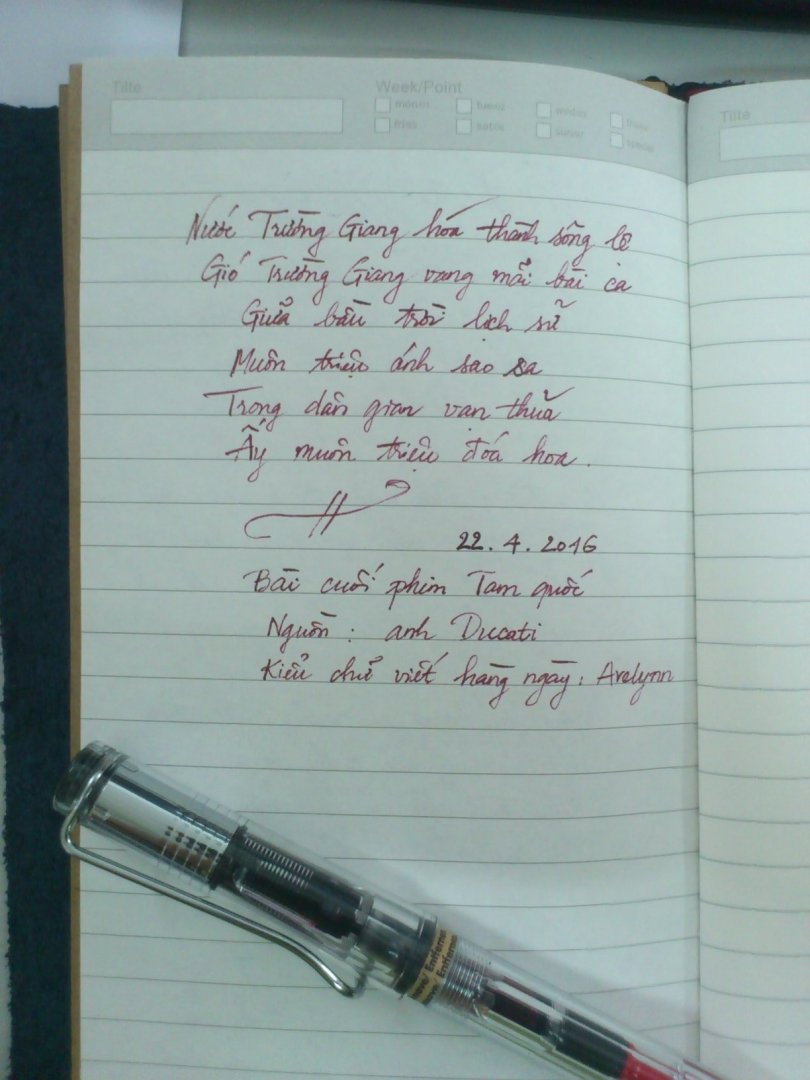 Tilte
Week/Point
Nước Trường Giang hóa thành sông lệ
Gió Trường Giang vang mãi bài ca
Giữa bầu trời lịch sử
Muôn triệu ánh sao sa
Trong dân gian vạn thuở
Ấy muôn triệu đoá hoa.
22.4.2016
Bài cuối phim Tam quốc
Nguồn: anh Ducati
Kiểu chữ viết hàng ngày: Avelynn
Tilte